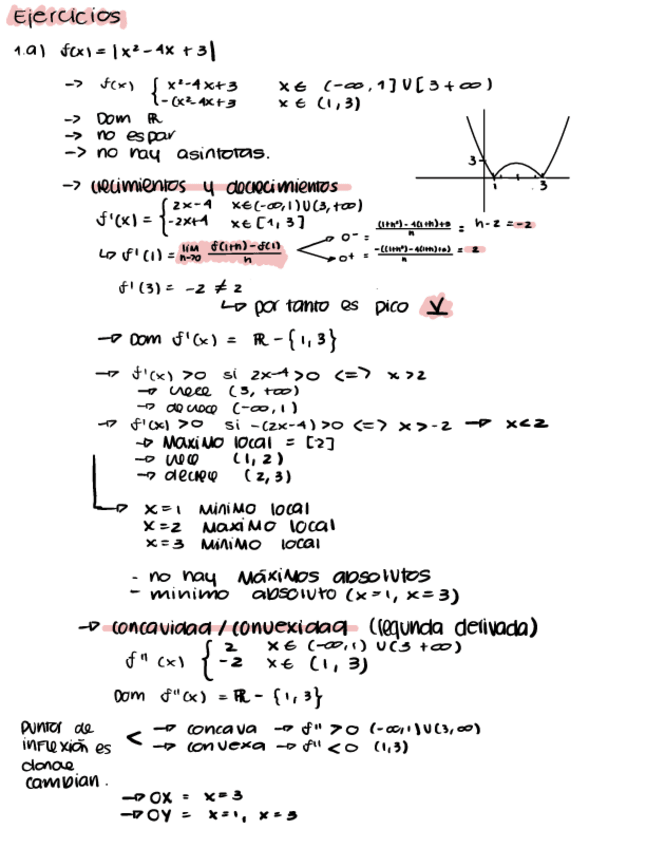 Ejercicios
1.a) f(x) = |x² - 4x + 3|
→ f(x) { x²-4x+3   x ∈ (-∞, 1] ∪ [3 +∞)
-(x²-4x+3   x ∈ (1,3)
→ Dom ℝ
→ no es par
→ no hay asintotas.
3
1 3
→ crecimientos y decrecimientos
f'(x) = { 2x-4   x∈(-∞,1)∪(3,+∞)
-2x+4   x∈[1,3]
↳ f'(1) = lim n→0 f(1+h)-f(1) / h
0⁻ = (1+h²)-4(1+h)+3 / h = h-2 = -2
0⁺ = / h = 2
f'(3) = -2 ≠ 2
↳ por tanto es pico V
→ Dom f'(x) = ℝ - {1,3}
→ f'(x) >0 si 2x-4>0 <=> x>2
→ crece (3, +∞)
→ decrece (-∞, 1)
→ f'(x) >0 si -(2x-4)>0 <=> x>-2 → x<2
→ Maximo local = [2]
→ crece (1,2)
→ decrece (2,3)
→ x=1 Minimo local
x=2 Maximo local
x=3 Minimo local
- no hay Máximos absolutos
- minimo absoluto (x=1, x=3)
→ concavidad / convexidad (segunda derivada)
f''(x) { 2   x ∈ (-∞,1) ∪ (3 +∞)
-2   x ∈ (1,3)
Dom f''(x) = ℝ - {1,3}
Puntos de inflexión es donde cambian.
< → concava → f'' >0 (-∞,1)∪(3,∞)
→ convexa → f'' <0 (1,3)
→ OX = x=3
→ OY = x=1, x=3